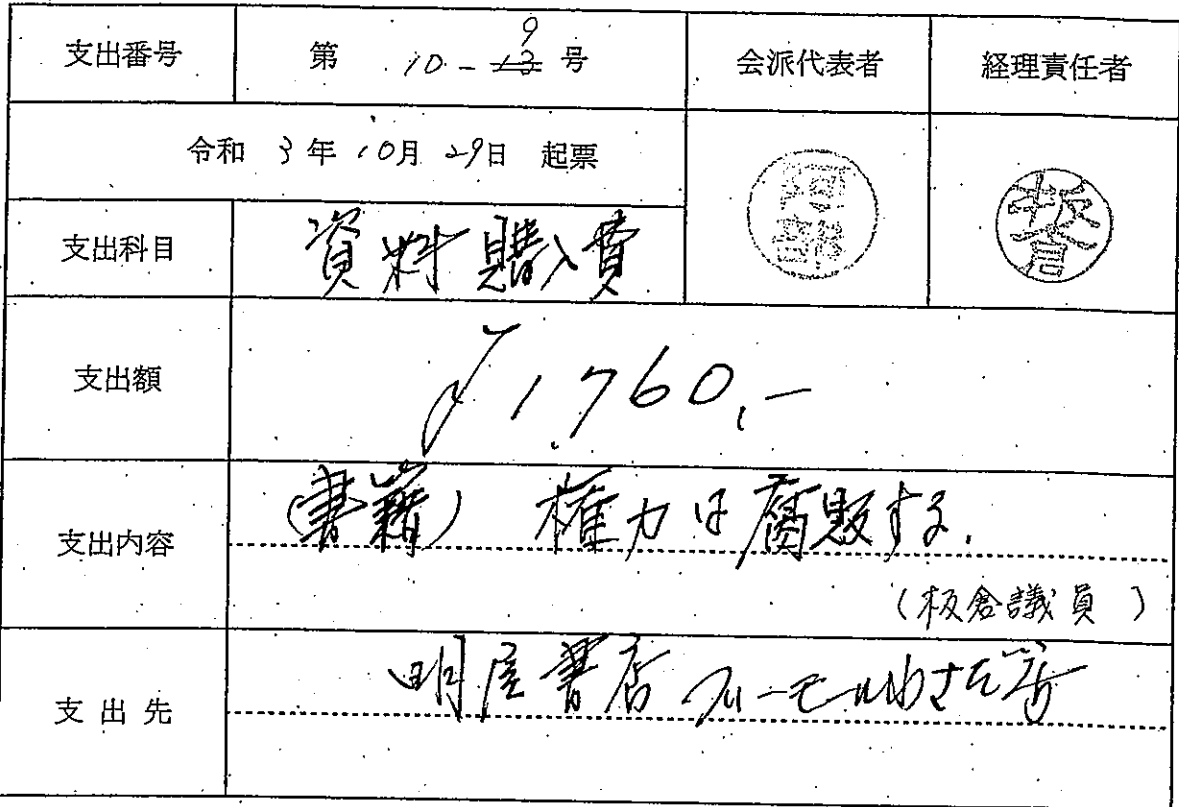 支出番号 第 10-9 号 会派代表者 経理責任者
令和 3年 10月 29日 起票
阿部
板倉
支出科目 資料購入費
支出額 ¥1,760,-
支出内容 (書籍) 権力は腐敗する.
(板倉議員)
支出先 明屋書店 フリーモールわさだ店